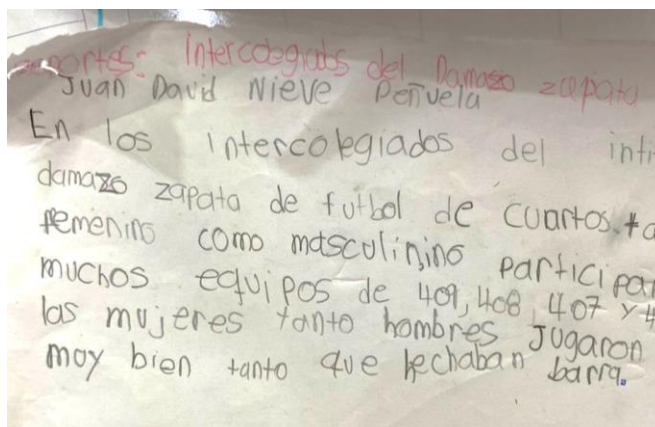 Intercolegiados del Damaso zapata
Juan David Nieve Peñuela
En los intercolegiados del
damazo zapata de futbol de cuartos
femenino como masculinino
muchos equipos de 409, 408, 407 y
las mujeres tanto hombres Jugaron
moy bien tanto que hechaban barra.